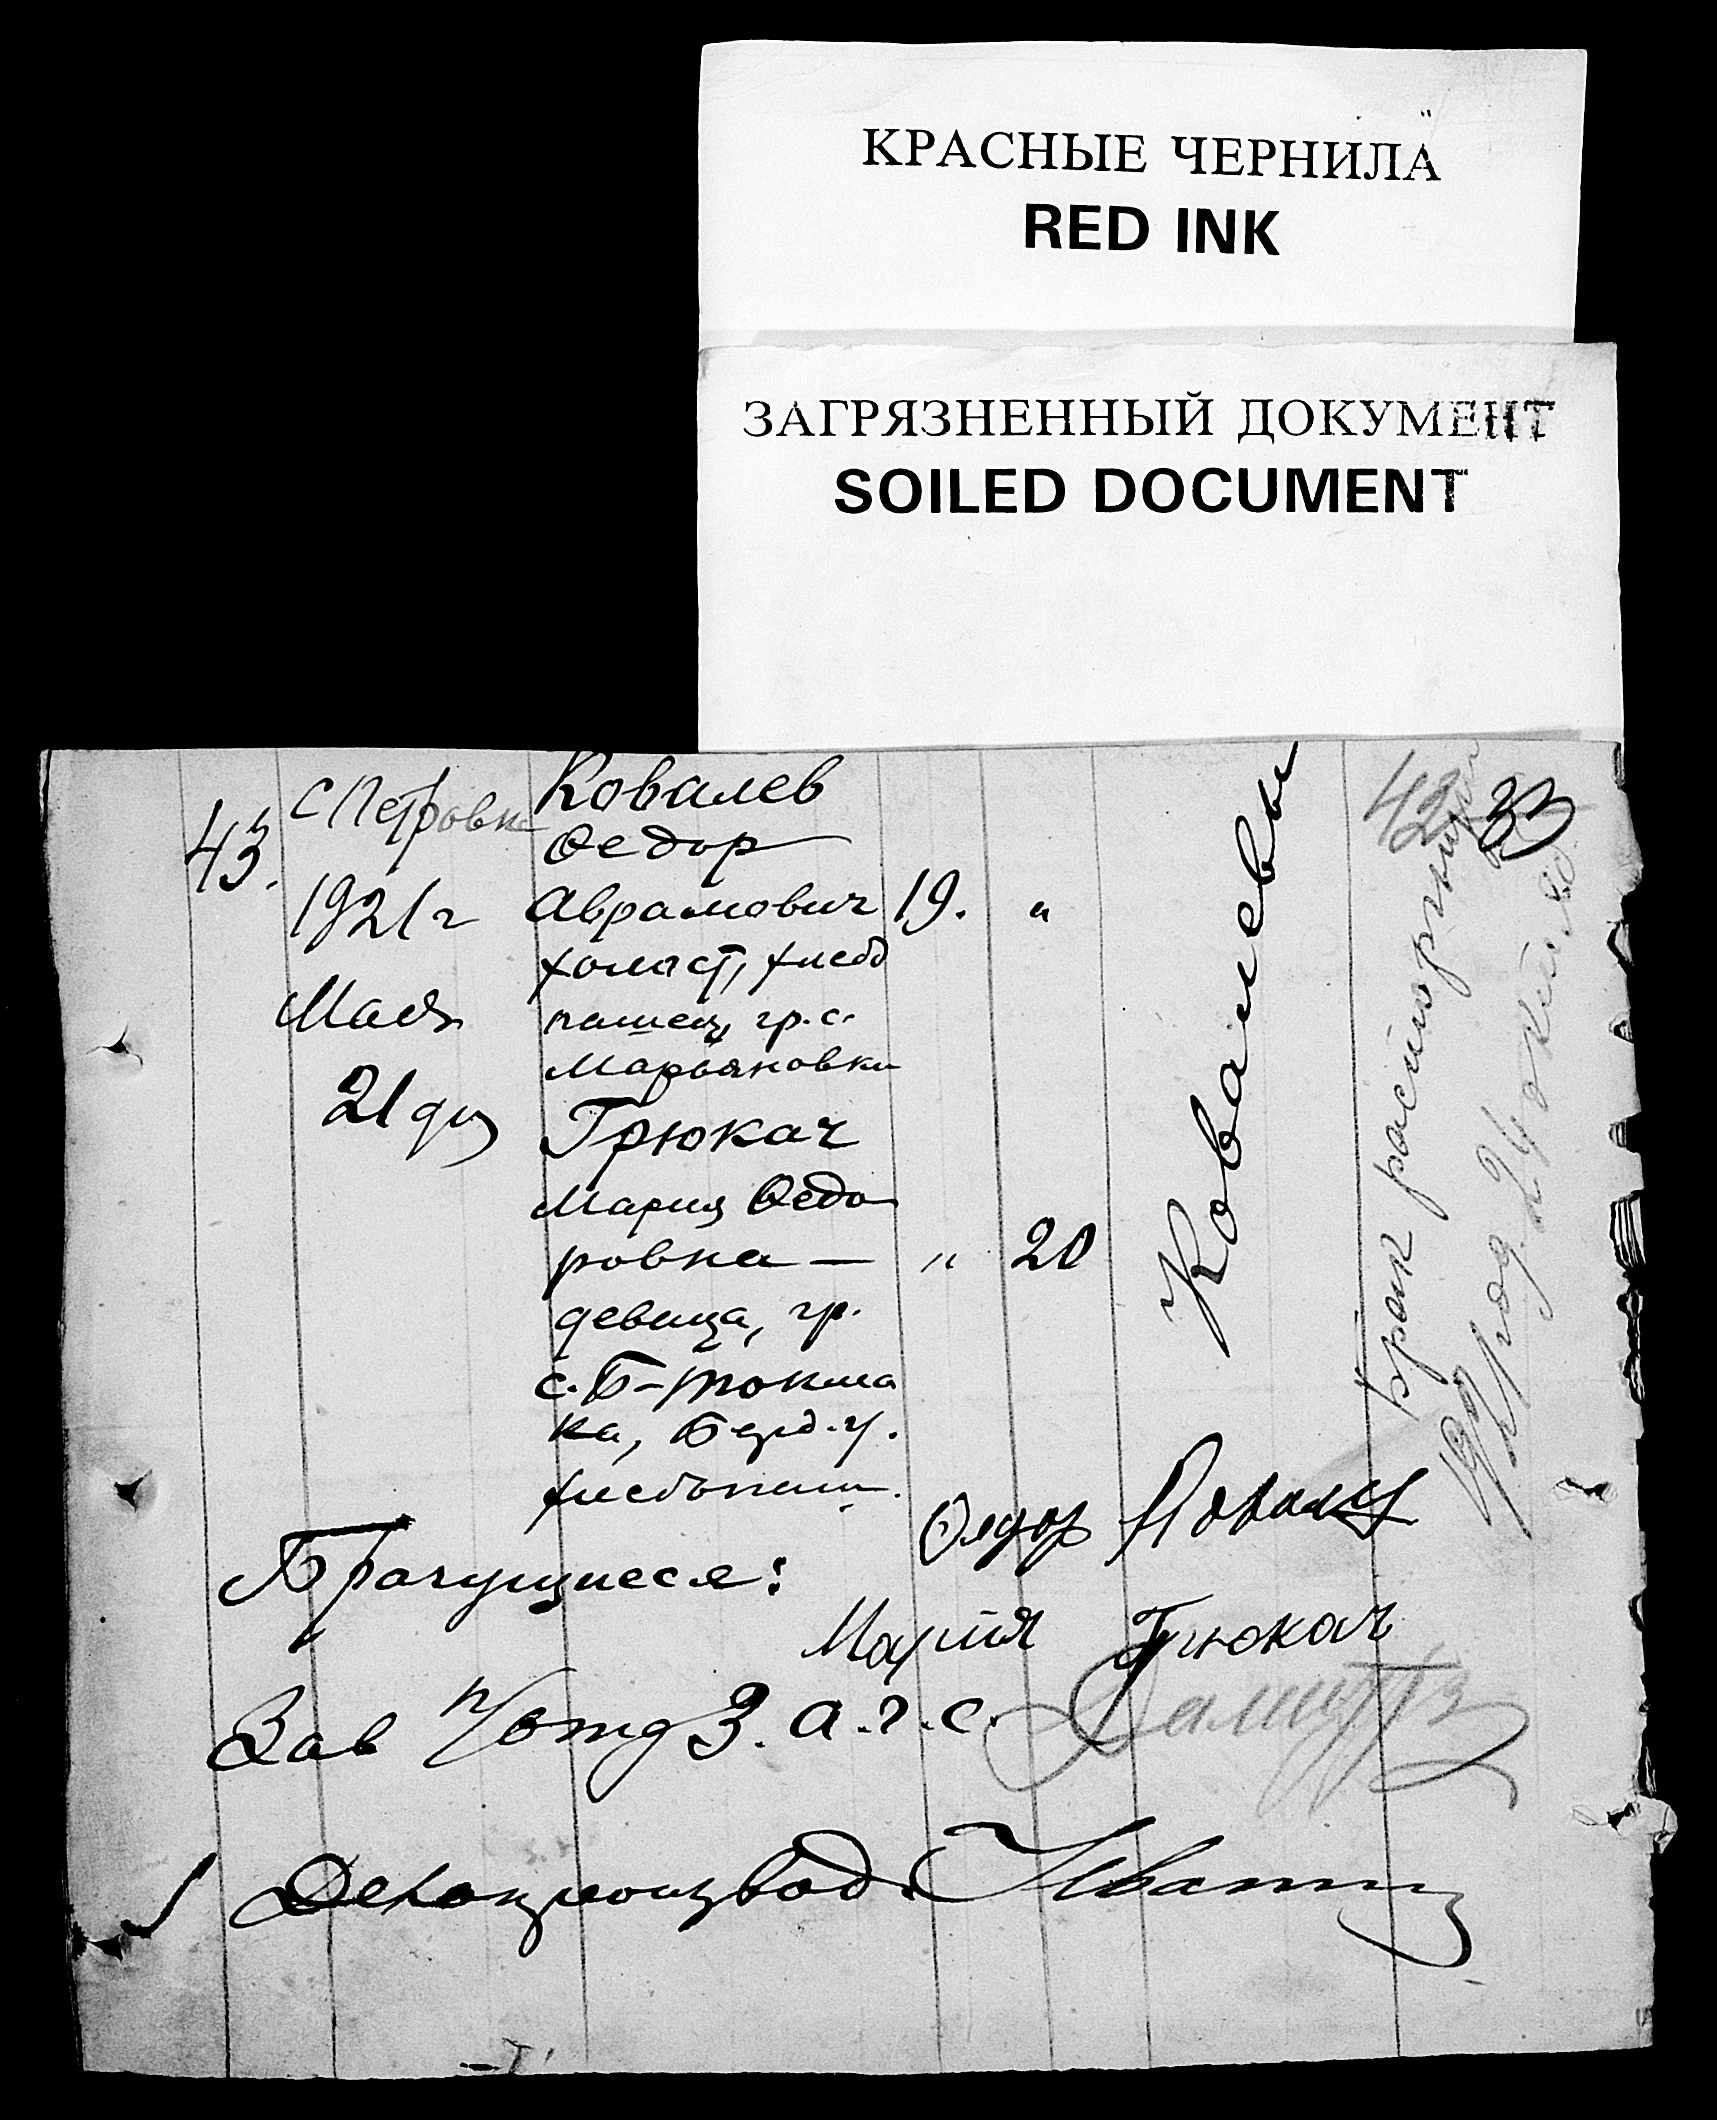 КРАСНЫЕ ЧЕРНИЛА
RED INK
ЗАГРЯЗНЕННЫЙ ДОКУМЕНТ
SOILED DOCUMENT
42 33
43.
с Петровка
1921 г
Мая
21 дня
Ковалев
Федор
Аврамович 19. "
холост, хлебо
пашец, гр. с.
Марьяновки
Грюкач
Мария Федо
ровна — " 20
девица, гр.
с. Б-Токма
ка, Берд. у.
хлебопаш.
Ковалевы
Брак расторгнут
1921 год. 24 окт.
Брачущиеся: Федор Ковалев
Мария Грюкач
Зав п/отд З.а.г.с.
Делопроизвод.